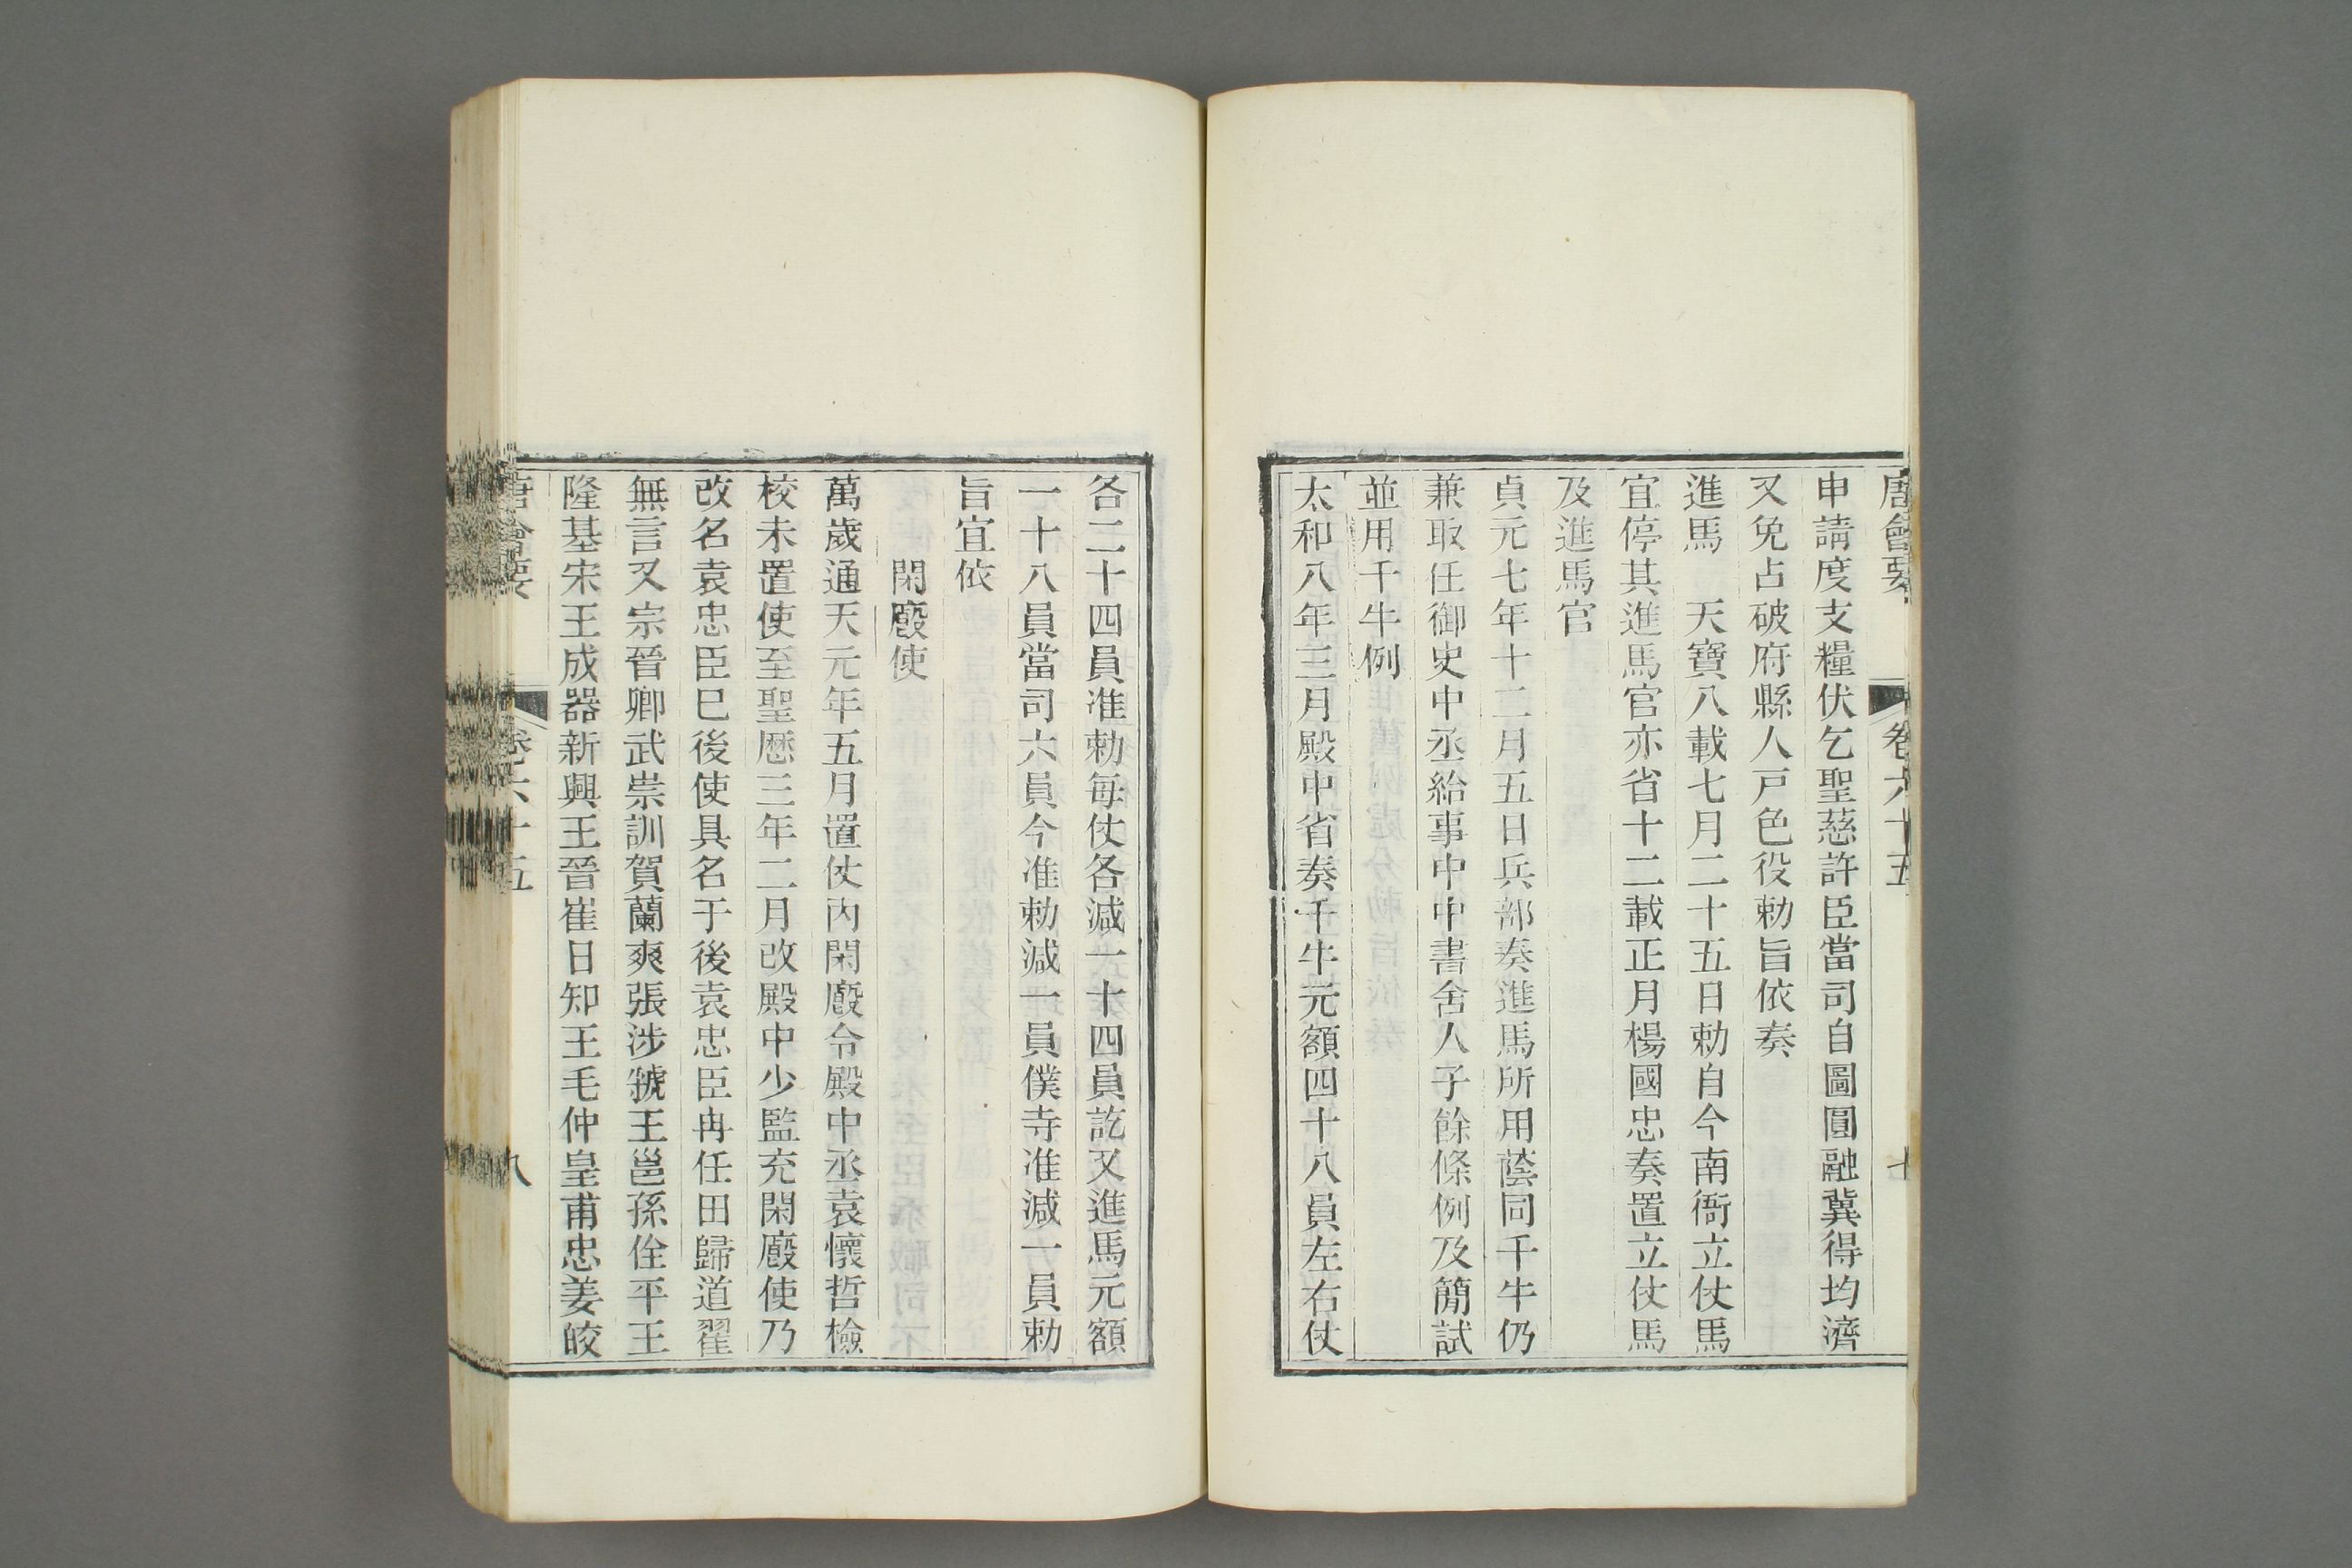 唐會要 卷六十五 七
申請度支糧伏乞聖慈許臣當司自圖圓融冀得均濟
又免占破府縣人戸色役勅旨依奏
進馬 天寶八載七月二十五日勅自今南衙立仗馬
宜停其進馬官亦省十二載正月楊國忠奏置立仗馬
及進馬官
貞元七年十二月五日兵部奏進馬所用蔭同千牛仍
兼取任御史中丞給事中中書舍人子餘條例及簡試
並用千牛例
太和八年三月殿中省奏千牛元額四十八員左右仗
各二十四員准勅每仗各減一十四員訖又進馬元額
一十八員當司六員今准勅減一員僕寺准減一員勅
旨宜依
閑廏使
萬歲通天元年五月置仗內閑廏令殿中丞袁懷哲檢
校未置使至聖厯三年二月改殿中少監充閑廏使乃
改名袁忠臣巳後使具名于後袁忠臣冉任田歸道翟
無言又宗晉卿武崇訓賀蘭爽張涉虢王邕孫佺平王
隆基宋王成器新興王晉崔日知王毛仲皇甫忠姜皎
唐會要 卷六十五 八